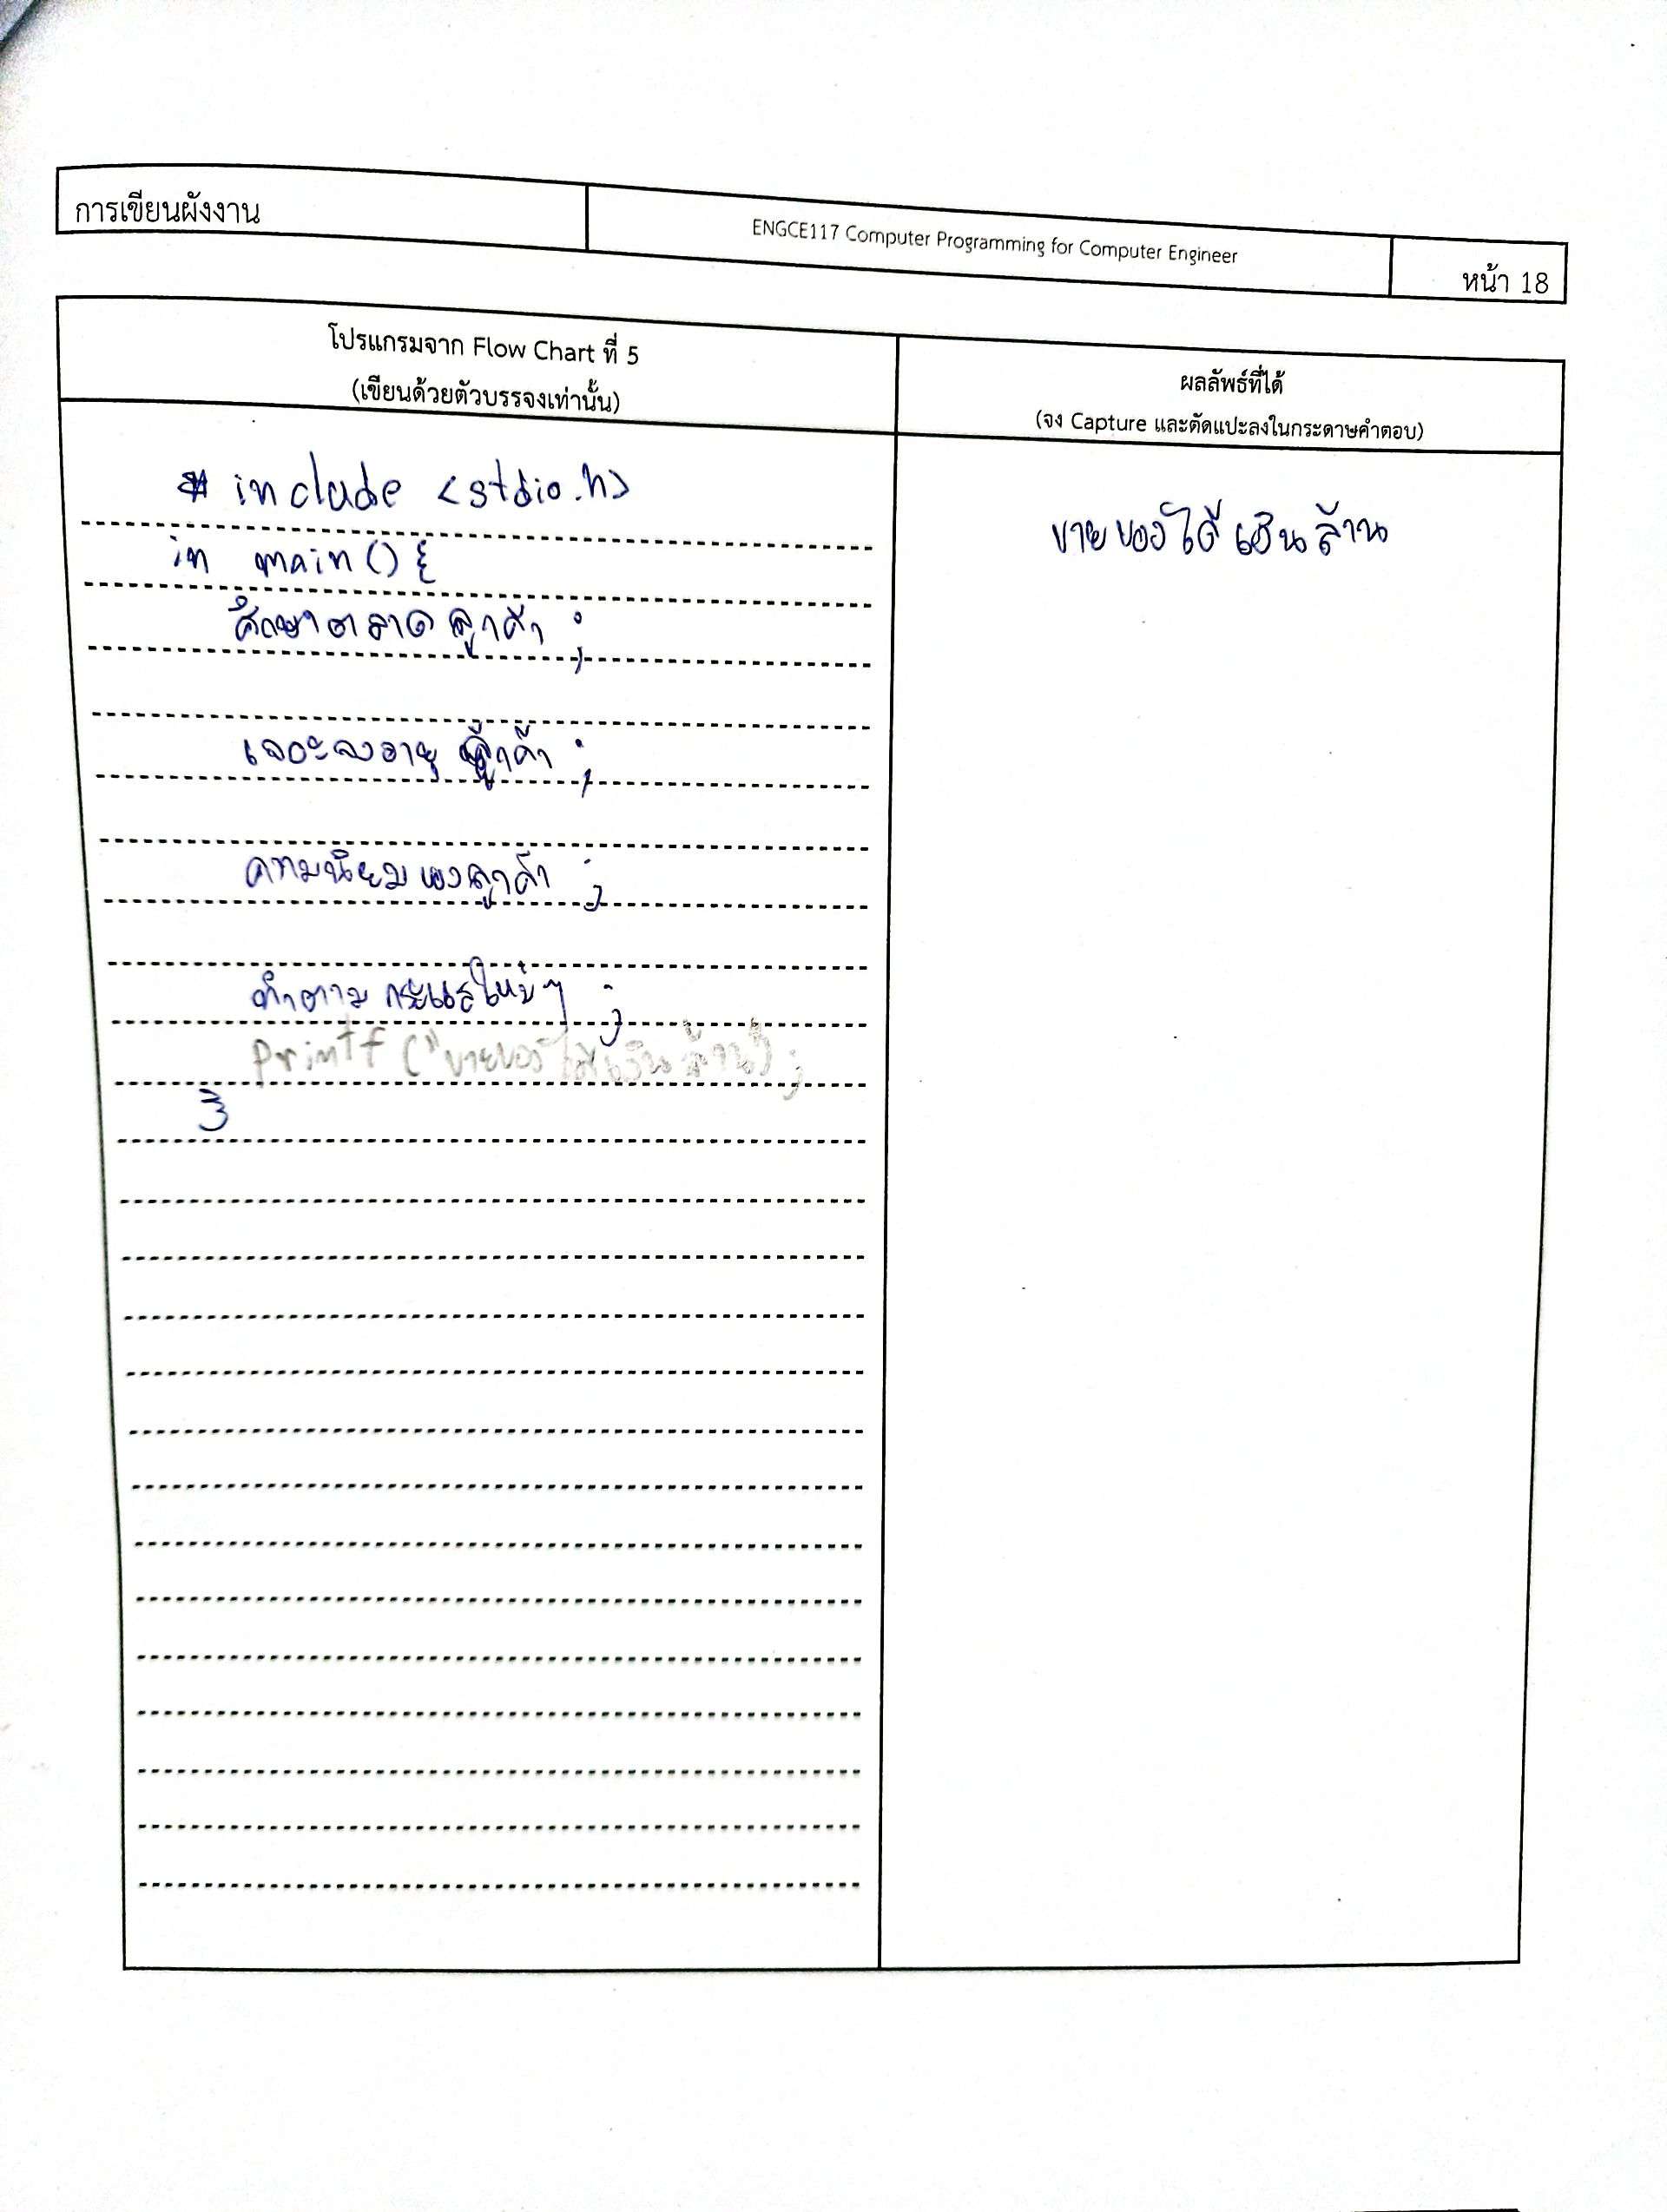 การเขียนผังงาน
ENGCE117 Computer Programming for Computer Engineer
หน้า 18
โปรแกรมจาก Flow Chart ที่ 5
(เขียนด้วยตัวบรรจงเท่านั้น)
ผลลัพธ์ที่ได้
(จง Capture และตัดแปะลงในกระดาษคำตอบ)
# include <stdio.h>
in main() {
ศึกษาตลาดลูกค้า ;
เจอะจงอายุ ลูกค้า ;
ความนิยมของลูกค้า ;
ทำตาม กระแสใหม่ๆ ;
printf ("ขายของได้เงินล้าน");
}
ขายของได้เงินล้าน